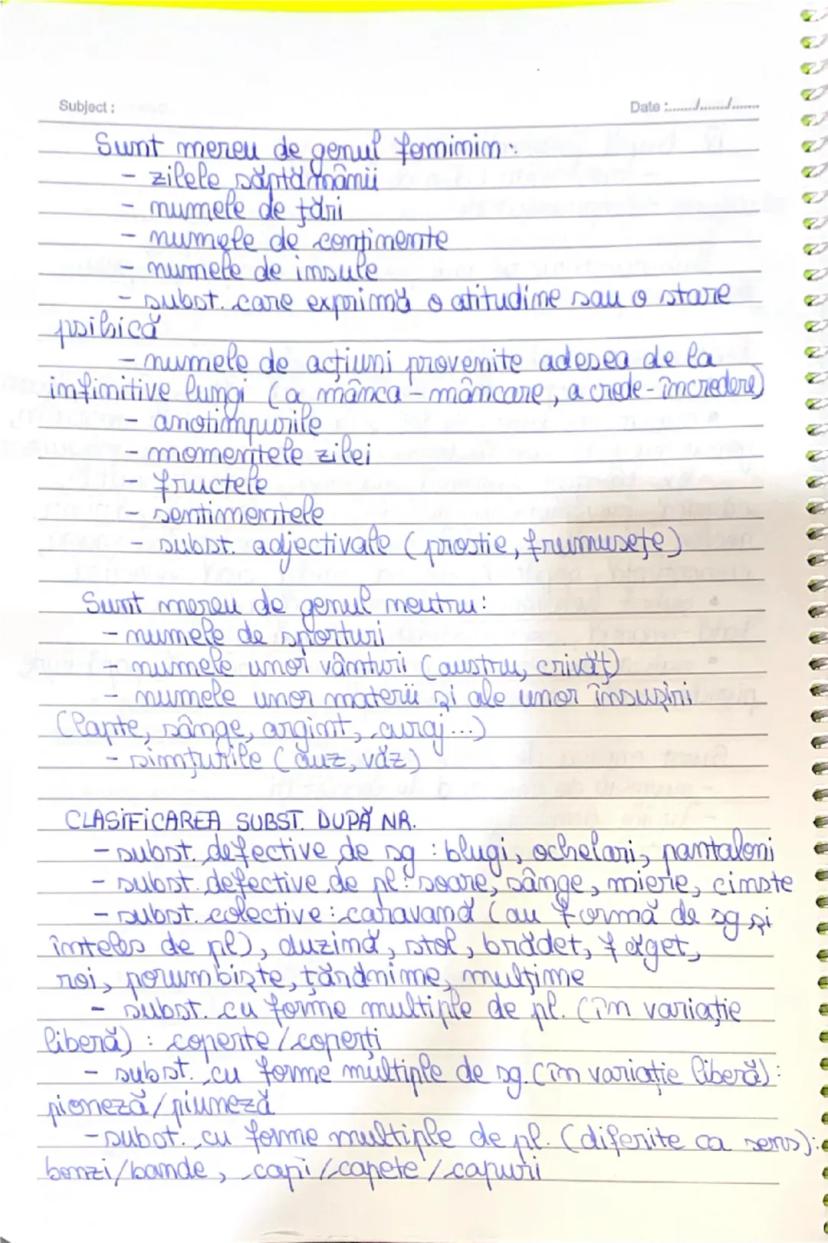 Subject :
Date :......./......./.......
Sunt mereu de genul feminin:
- zilele săptămânii
- numele de țări
- numele de continente
- numele de insule
- subst. care exprimă o atitudine sau o stare
psihică
- numele de acțiuni provenite adesea de la
infinitive lungi (a mânca - mâncare, a crede - încredere)
- anotimpurile
- momentele zilei
- fructele
- sentimentele
- subst. adjectivale (prostie, frumusețe)
Sunt mereu de genul neutru:
- numele de sporturi
- numele unor vânturi (austru, crivăț)
- numele unor materii și ale unor însușiri
(lapte, sânge, argint, curaj...)
- simțurile (auz, văz)
CLASIFICAREA SUBST. DUPĂ NR.
- subst. defective de sg : blugi, ochelari, pantaloni
- subst. defective de pl: soare, sânge, miere, cinste
- subst. colective : caravană (au formă de sg și
înteles de pl), duzină, stol, brădet, făget,
roi, porumbiște, țărănime, mulțime
- subst. cu forme multiple de pl. (în variație
liberă) : coperte / coperți
- subst. cu forme multiple de sg. (în variație liberă):
pioneză / piuneză
- subst. cu forme multiple de pl. (diferite ca sens):
benzi/bande, capi / capete / capuri